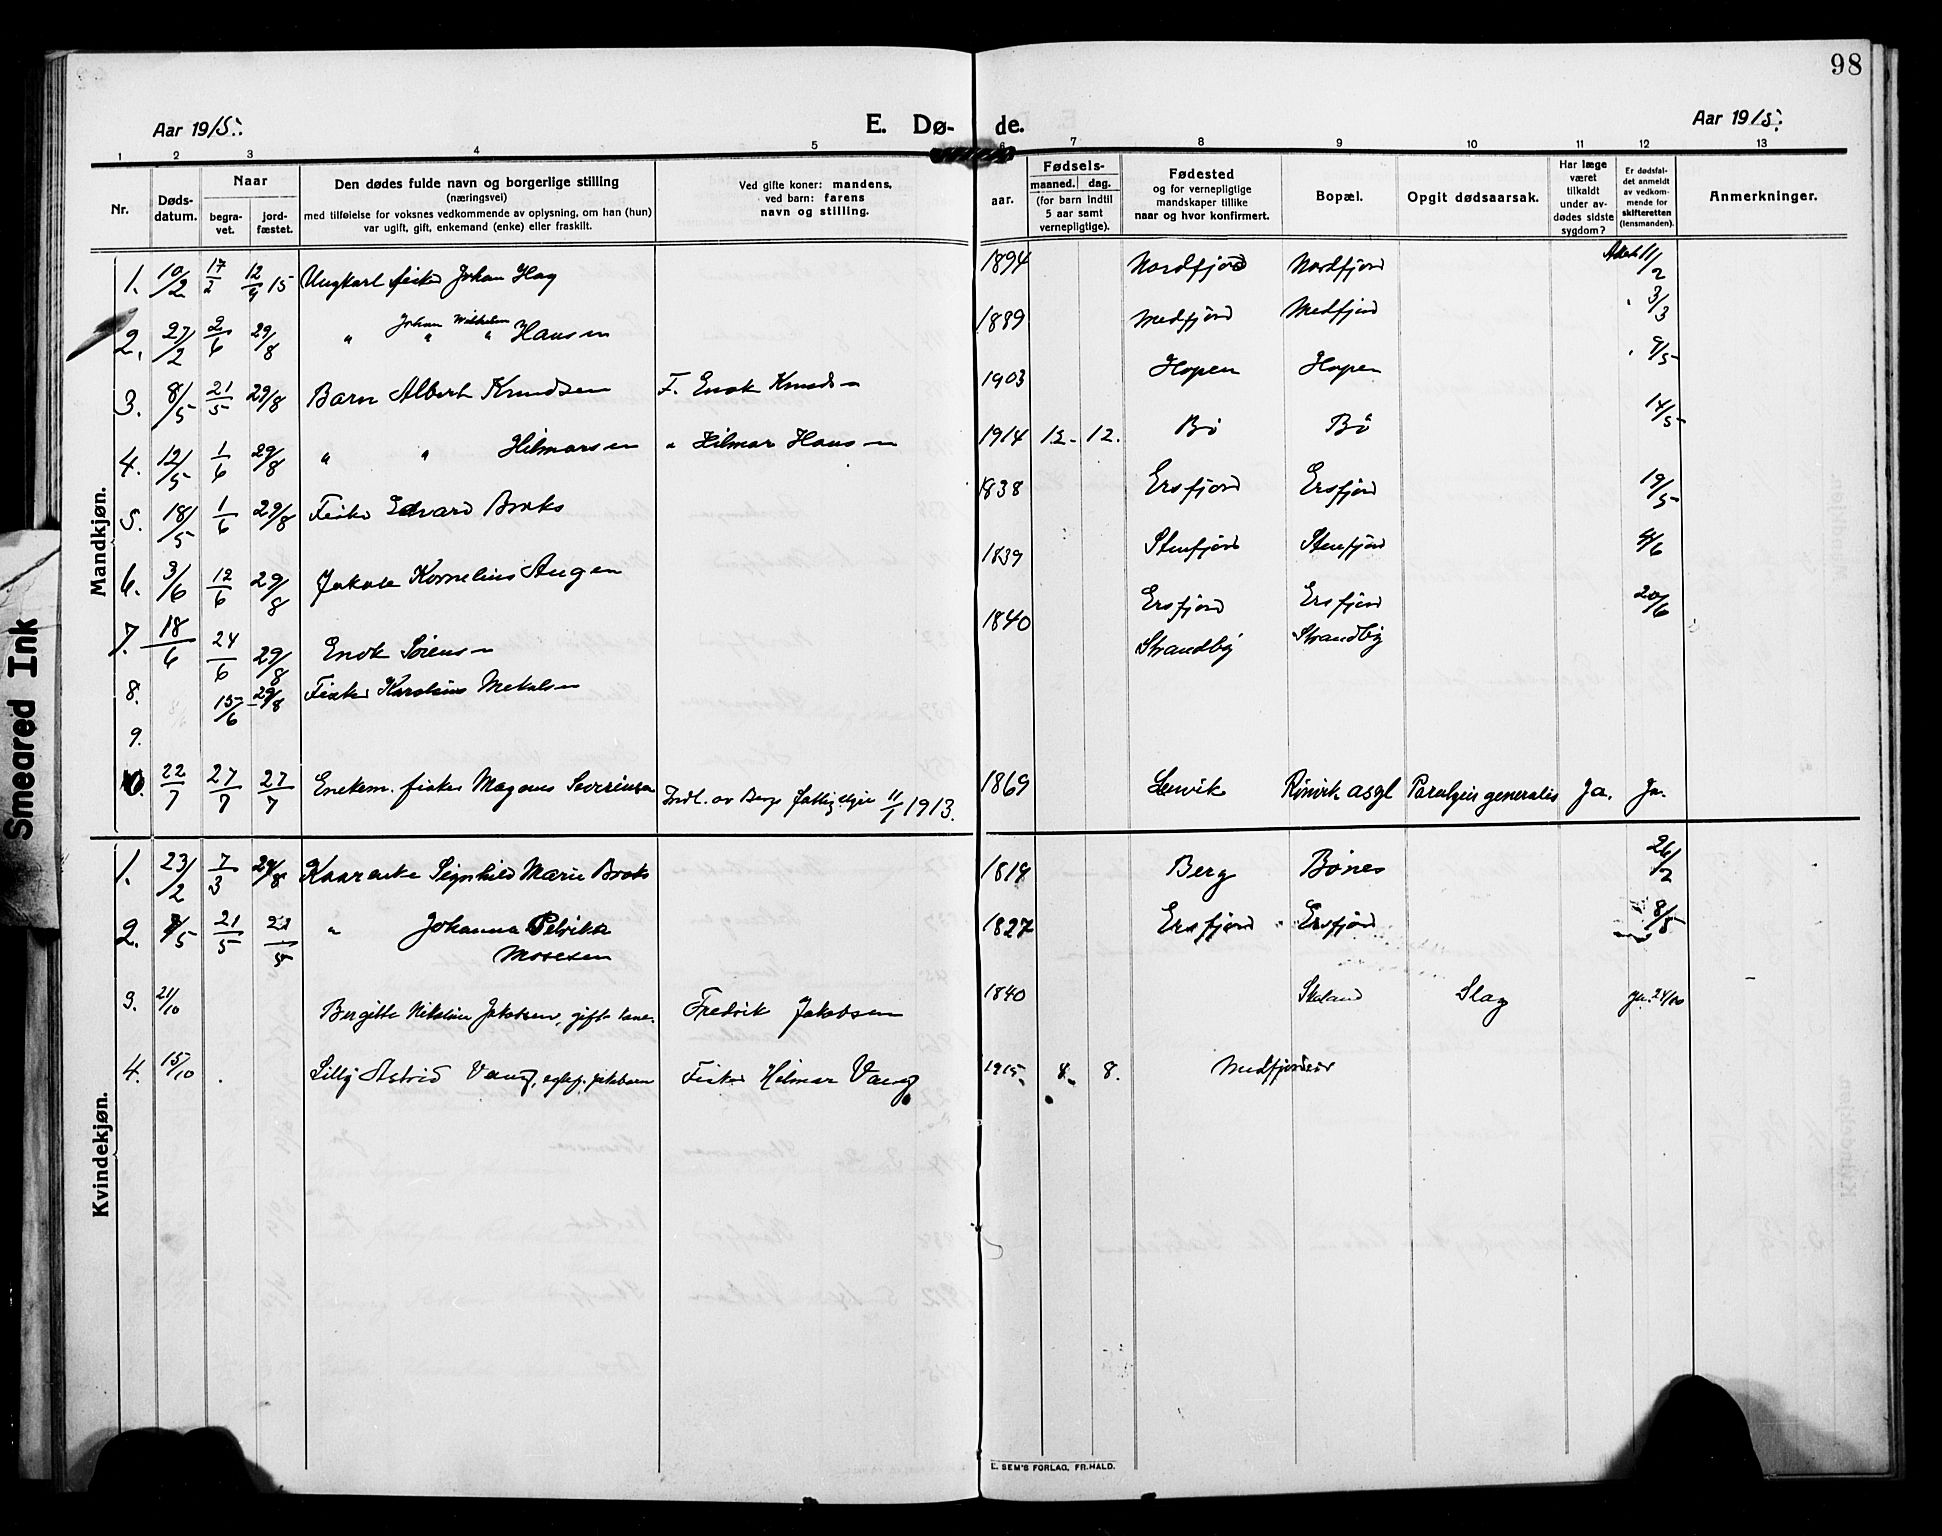 98
Aar 1915.
E. Dø-
de.
Aar 1915.
1 2 3 4 5 6 7 8 9 10 11 12 13
Nr.
Døds-
datum.
Naar
begra-
vet.
jord-
fæstet.
Den dødes fulde navn og borgerlige stilling
(næringsvei)
med tilføielse for voksnes vedkommende av oplysning, om han (hun)
var ugift, gift, enkemand (enke) eller fraskilt.
Ved gifte koner: mandens,
ved barn: farens
navn og stilling.
Fødsels-
aar.
maaned. dag.
(for barn indtil
5 aar samt
vernepligtige).
Fødested
og for vernepligtige
mandskaper tillike
naar og hvor konfirmert.
Bopæl.
Opgit dødsaarsak.
Har læge
været
tilkaldt
under av-
dødes sidste
sygdom?
Er dødsfal-
det anmeldt
av vedkom-
mende for
skifteretten
(lensmanden).
Anmerkninger.
Mandkjøn.
1. 10/2 17/2 12/9 15 Ungkarl fisker Johan Hag 1894 Nordfjord Nordfjord 11/2
2. 27/2 2/6 29/8 " Johan Wilhelm Hansen 1889 Medfjord Medfjord " 3/3
3. 8/5 21/5 29/8 Barn Albert Knudsen F. Enok Knuds- 1903 Hopen Hopen " 9/5
4. 12/5 1/6 29/8 " " Hilmarsen " Hilmar Hans- 1914 12. 12. Bø Bø 14/5
5. 18/5 1/6 29/8 Fisker Edvard Broks 1838 Ersfjord Ersfjord 19/5
6. 3/6 12/6 29/8 Jakob Kornelius Angen 1839 Stenfjord Stenfjord 4/6
7. 18/6 24/6 29/8 Enok Sørens- 1840 Ersfjord Ersfjord 20/6
8. 15/6 29/8 Fisker Karolius Mekals- Strandby Strandby
9.
10. 22/7 27/7 27/7 Enkem. fisker Magnus Severinsen Indl. av Bergs fattigstyre 11/1 1913. 1869 Lenvik Rønvik asyl Paralysis generalis Ja. Ja.
Kvindekjøn.
1. 23/2 7/3 29/8 Kaarenke Signhild Marie Broks 1819 Berg Bønes 26/2
2. 7/5 21/5 21/5 " Johanna Petrikke
Mosesen 1827 Ersfjord Ersfjord 8/5
3. 21/10 Bergitte Nikoline Jakobsen, gift kone. Fredrik Jakobsen 1840 Skaland Slag ja. 24/10
4. 15/10 Lilly Astrid Vang, Fisker Hilmar Vang 1915. 8. 8. Medfjordvær
E. SEM'S FORLAG, FR.HALD.
Smeared Ink